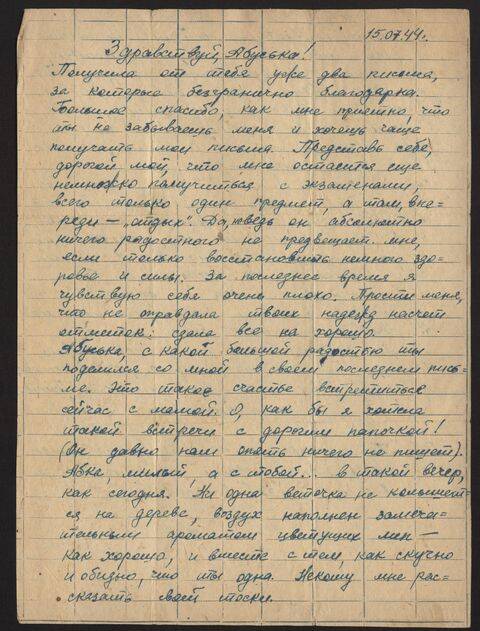 15.07.44г.
Здравствуй, Абуська!
Получила от тебя уже два письма,
за которые безгранично благодарна.
Большое спасибо, как мне приятно, что
ты не забываешь меня и хочешь чаще
получать мои письма. Представь себе,
дорогой мой, что мне остаётся еще
немножко помучиться с экзаменами,
всего только один предмет, а там, впе-
реди — „отдых". Да, ведь он абсолютно
ничего радостного не предвещает мне,
если только восстановить немного здо-
ровье и силы. За последнее время я
чувствую себя очень плохо. Прости меня,
что не оправдала твоих надежд насчет
отметок: сдала все на хорошо.
Абуська, с какой большой радостью ты
поделился со мной в своем последнем пись-
ме. Это такое счастье встретиться
сейчас с мамой. О, как бы я хотела
такой встречи с дорогим папочкой!
(Он давно нам опять ничего не пишет).
Абка, милый, а с тобой... в такой вечер,
как сегодня. Ни одна веточка не колышет-
ся на дереве, воздух наполнен замеча-
тельным ароматом цветущих лип —
как хорошо, и вместе с тем, как скучно
и обидно, что ты одна. Некому мне рас-
сказать моей тоски.